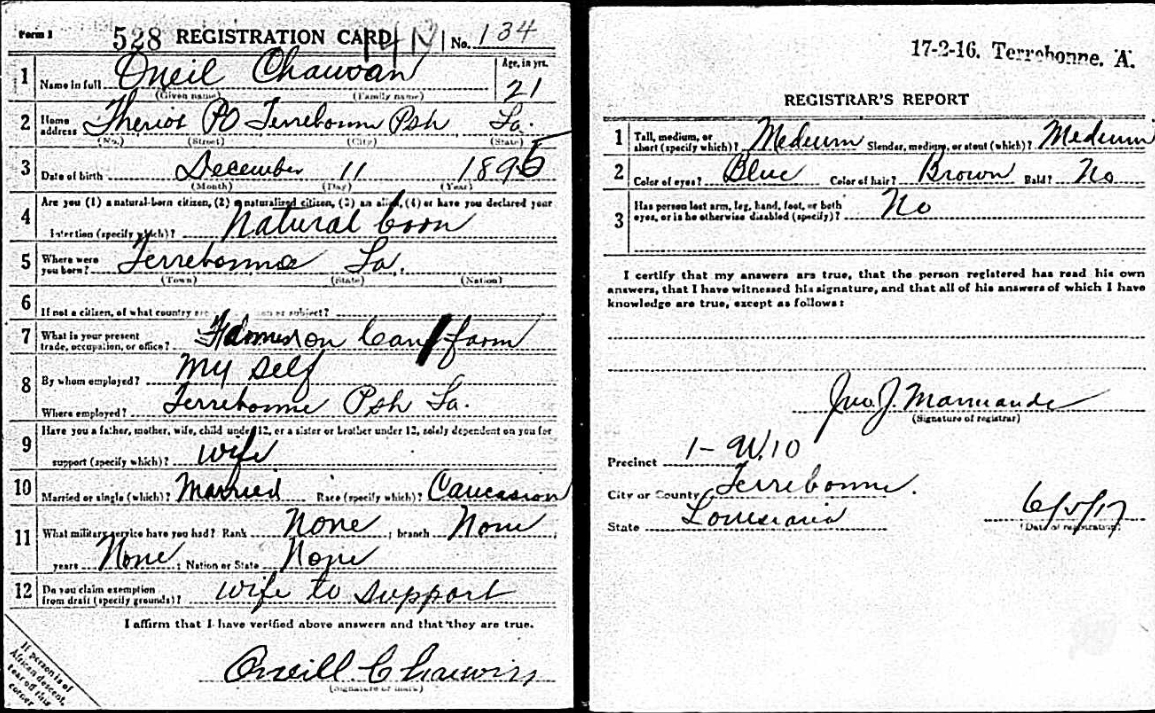 Form 1 528 REGISTRATION CARD No. 134
1 Name in full Oneil Chauvan Age, in yrs. 21
(Given name) (Family name)
2 Home address Theriot PO Terrebonne Psh La.
(No.) (Street) (City) (State)
3 Date of birth December 11 1895
(Month) (Day) (Year)
4 Are you (1) a natural-born citizen, (2) a naturalized citizen, (3) an alien, (4) or have you declared your
intention (specify which)? Natural born
5 Where were you born? Terrebonne La.
(Town) (State) (Nation)
6 If not a citizen, of what country are you a citizen or subject?
7 What is your present trade, occupation, or office? farm
8 By whom employed? My self
Where employed? Terrebonne Psh La.
9 Have you a father, mother, wife, child under 12, or a sister or brother under 12, solely dependent on you for
support (specify which)? wife
10 Married or single (which)? Married Race (specify which)? Caucasion
11 What military service have you had? Rank None ; branch None ;
years None ; Nation or State None
12 Do you claim exemption from draft (specify grounds)? wife to support
I affirm that I have verified above answers and that they are true.
Oneill Chauvin
(Signature or mark)
If person is of
African descent,
tear off this
corner
17-2-16. Terrebonne. A.
REGISTRAR'S REPORT
1 Tall, medium, or short (specify which)? Medeum Slender, medium, or stout (which)? Medeum
2 Color of eyes? Blue Color of hair? Brown Bald? No
3 Has person lost arm, leg, hand, foot, or both
eyes, or is he otherwise disabled (specify)? No
I certify that my answers are true, that the person registered has read his own
answers, that I have witnessed his signature, and that all of his answers of which I have
knowledge are true, except as follows:
Jno. J. Marmande
(Signature of registrar)
Precinct 1- W.10
City or County Terrebonne.
State Louisiana 6/5/17
(Date of registration)